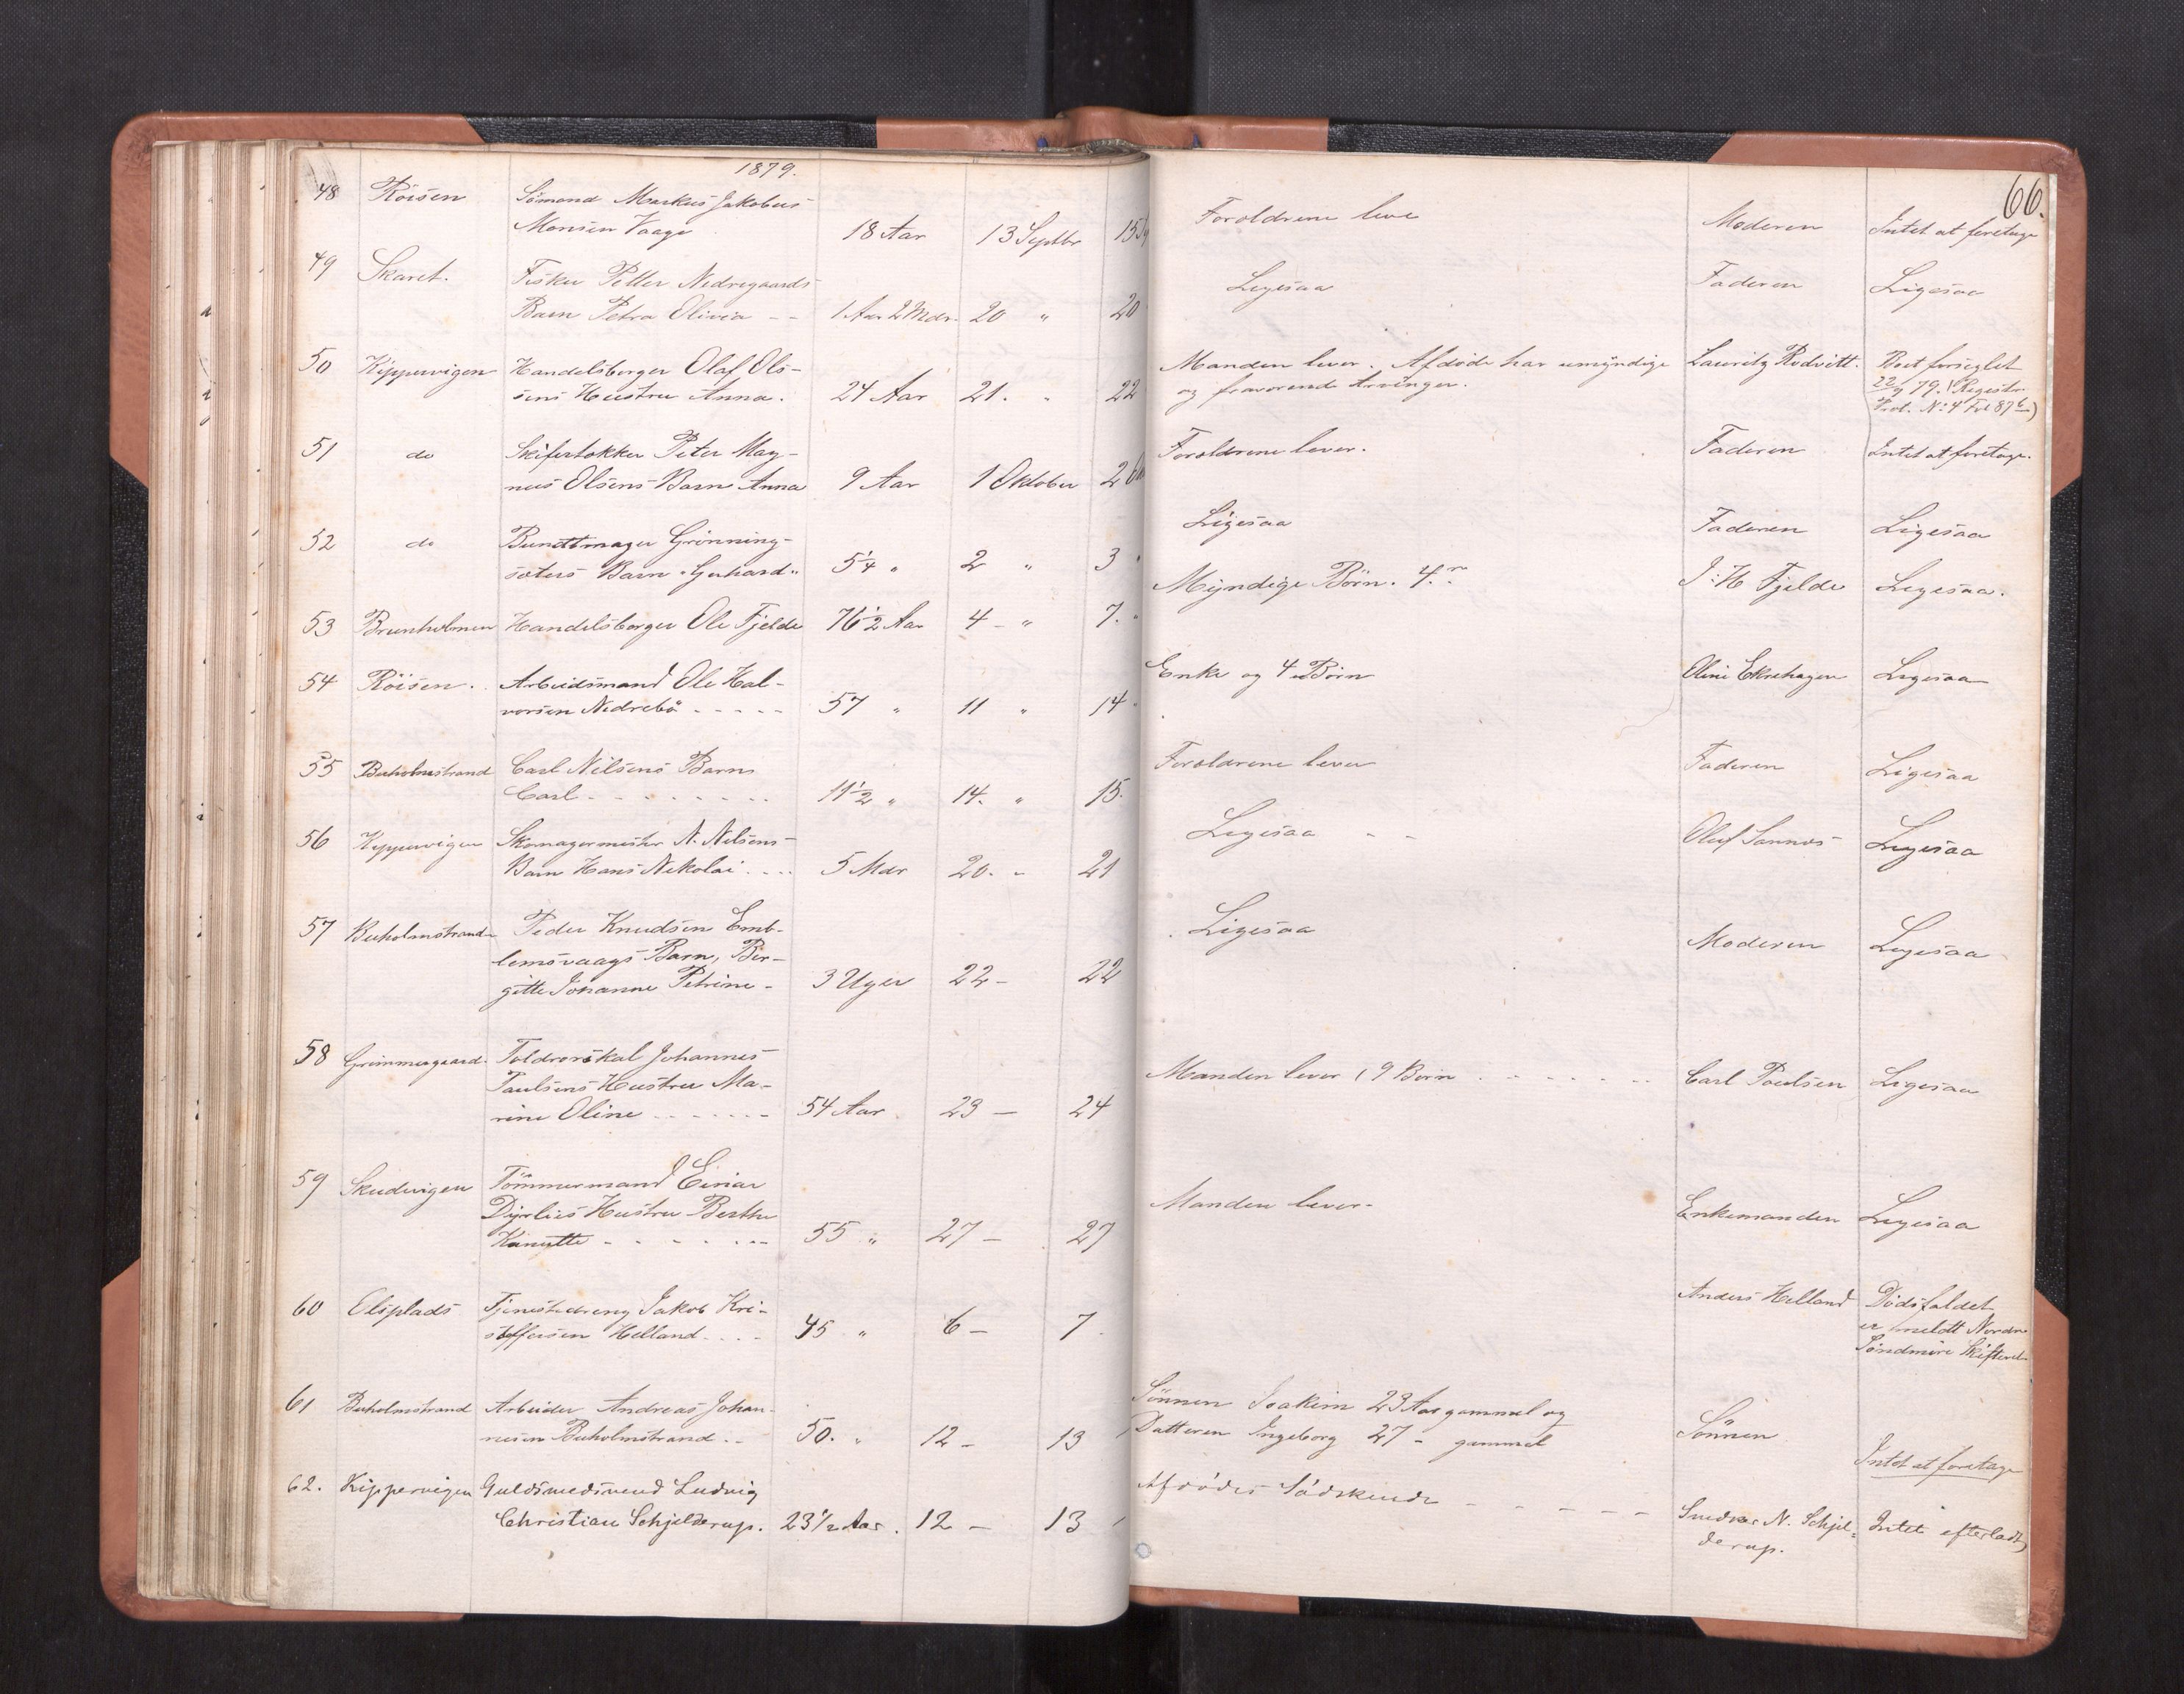 1879.
66.
48 Röisen Sömand Markus Jakobus
Monsen Vaage 18 Aar 13 Septbr 15
Foroldrene leve Moderen Intet at foretage
49 Skaret. Fisker Petter Nedregaards
Barn Petra Olivia - - 1 Aar 2 Mdr. 20 " 20
Ligesaa Faderen Ligesaa
50 Kippervigen Handelsborger Olaf Ols-
sens Hustru Anna. 24 Aar 21. " 22
Manden lever. Afdöde har umyndige Lauritz Rödvitt. Boet forseglet
og fraværende Arvinger. 22/9 79. (Registr.
Prot. No: 4 Fol 87b)
51 do Skifertækker Peter Mag-
nus Olsens Barn Anna 9 Aar 1 Oktober 2
Foroldrene lever. Faderen Intet at foretage.
52 do Bundtmager Grönning-
sæters Barn "Gerhard" 5 1/4 " 2 " 3 "
Ligesaa Faderen Ligesaa
53 Brunholmen Handelsborger Ole Fjelde 76 1/2 Aar 4 - " 7. "
Myndige Börn. 4. J: H Fjelde Ligesaa.
54 Röisen. Arbeidsmand Ole Hal-
vorsen Nedrebö - - - - - 57 " 11 " 14 "
Enke og 4 Börn Oline Ekrehagen Ligesaa
55 Buholmstrand Carl Nilsens Barn
Carl - - - - - - - - 11 1/2 " 14. " 15.
Foroldrene lever Faderen Ligesaa
56 Kippervigen Skomagermester N. Nilsens
Barn Hans Nikolai - - - - 5 Mdr 20. - 21
Ligesaa - - Oluf Sannes Ligesaa
57 Buholmstrand Peder Knudsen Emb-
lemsvaags Barn, Ber-
gitte Johanne Petrine - 3 Uger 22 - 22
Ligesaa Moderen Ligesaa
58 Grimmergaard. Toldroerskal Johannes
Paulsens Hustru Ma-
rine Oline - - - - - - - 54 Aar 23 - 24
Manden lever, 9 Börn - - - - - - Carl Poulsen Ligesaa
59 Skudevigen Tömmermand Einar
Dyrlies Hustru Berthe
Kanutte - - - - - - 55 " 27 - 27
Manden lever. Enkemanden Ligesaa
60 Elsplads Tjenestedreng Jakob Kri-
stoffersen Helland - - - - 45 " 6 - 7
Anders Helland Dödsfaldet
er meldt Nordre
Söndmöre Skifteret
61 Buholmstrand Arbeider Andreas Johan-
nesen Buholmstrand. - 50. " 12 - 13
Sönnen Joakim 23 Aar gammel og
Datteren Ingeborg 27 - gammel Sönnen Intet at foretage
62. Kippervigen Guldsmedsvend Ludvig
Christian Schjelderup. 23 1/2 Aar. 12 - 13
Afdödes Södskende - - - - - Snedker N. Schjel- Intet efterladt
derup.